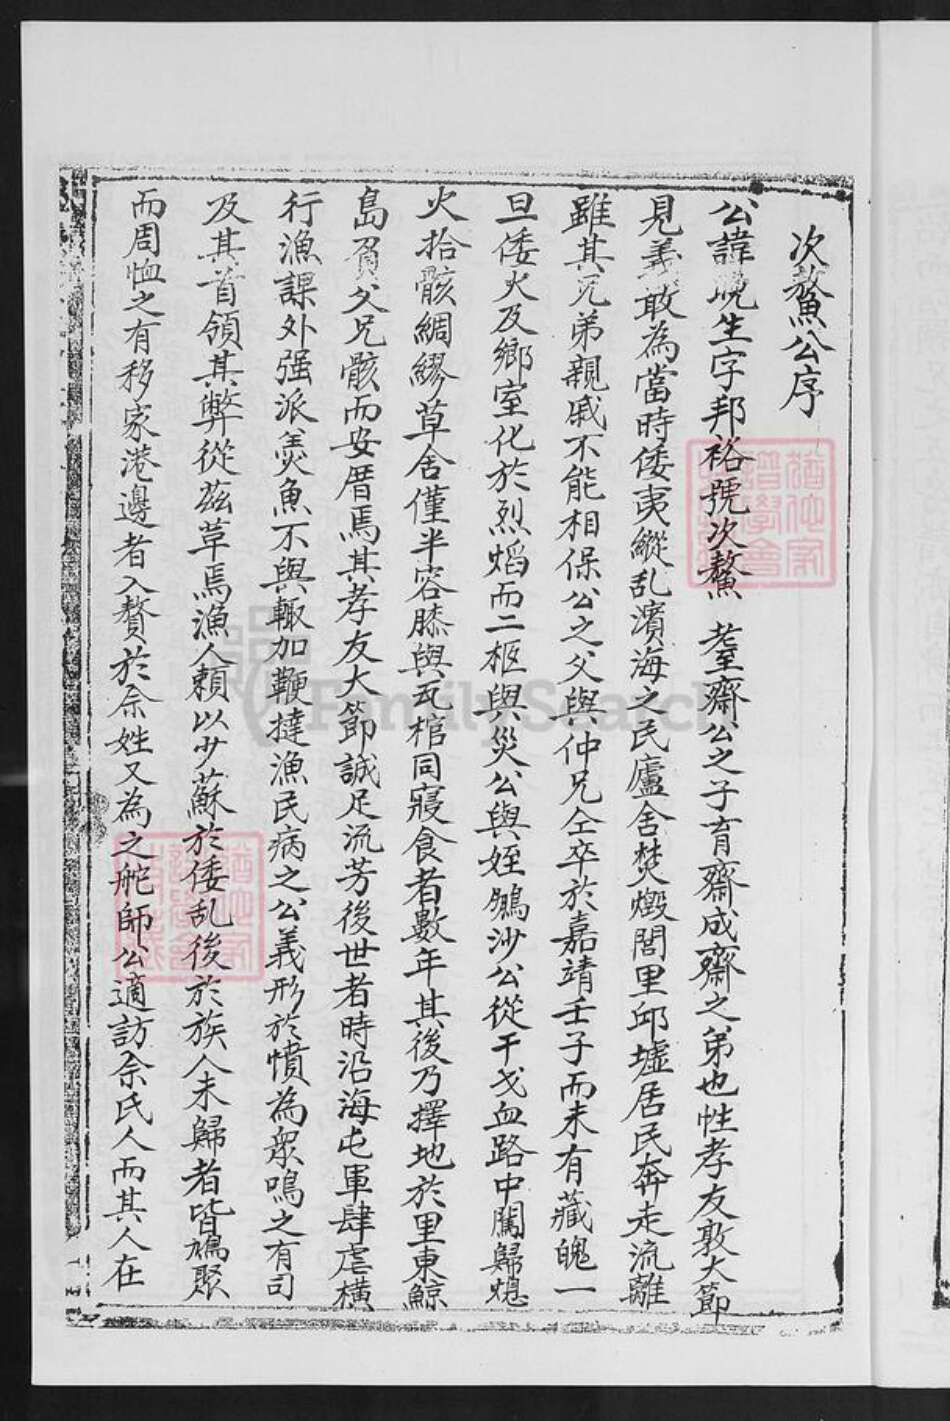 次鰲公序
公諱晚生字邦裕號次鰲 耋齋公之子育齋成齋之弟也性孝友敦大節
見義敢為當時倭夷縱乱濱海之民廬舍焚燬閭里邱墟居民奔走流離
雖其兄弟親戚不能相保公之父與仲兄仝卒於嘉靖壬子而未有藏魄一
旦倭火及鄉室化於烈焰而二柩與災公與姪鵬沙公從干戈血路中闖歸熄
火拾骸綢繆草舍僅半容膝與瓦棺同寢食者數年其後乃擇地於里東鯨
島負父兄骸而安厝焉其孝友大節誠足流芳後世者時沿海屯軍肆虐橫
行漁課外强派羙魚不與輙加鞭撻漁民病之公義形於憤為眾鳴之有司
及其首領其弊從茲草焉漁人賴以少蘇於倭乱後於族人未歸者皆鳩聚
而周恤之有移家港邊者入贅於佘姓又為之舵師公適訪佘氏人而其人在
FamilySearch